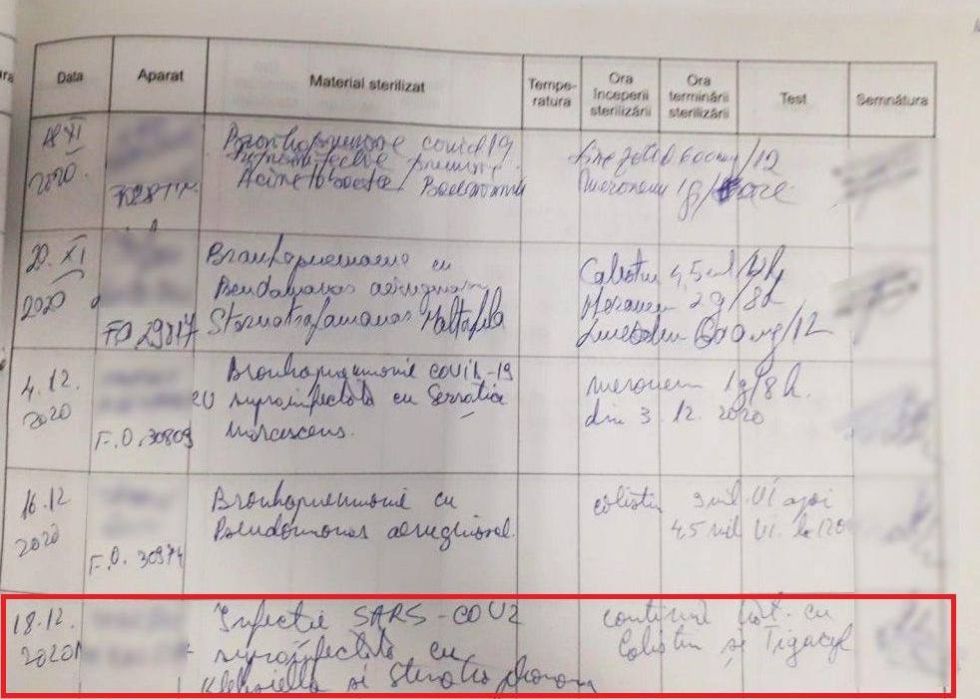 Data Aparat Material sterilizat Tempe-ratura Ora începerii sterilizării Ora terminării sterilizării Test Semnătura
18 XI 2020
covid 19
Acinetobacter
600mg/12
Meronem 1g/
20. XI 2020
FO 29817
Bronhopneumonie cu
Pseudomonas aeruginosa
Colistin 4,5 mil/12h
Meronem 2g/8h
600mg/12
4.12. 2020
F.O. 30809
Bronhopneumonie COVID-19
suprainfectată cu Serratia
marcescens.
meronem 1g/8h.
din 3.12.2020
16.12 2020
F.O. 30974
Bronhopneumonie cu
Pseudomonas
colistin 9 mil UI apoi
4.5 mil UI la 12h
18.12. 2020
Infectie SARS-COV2
suprainfectată cu
Klebsiella si
continuă cu
Colistin și Tigacyl